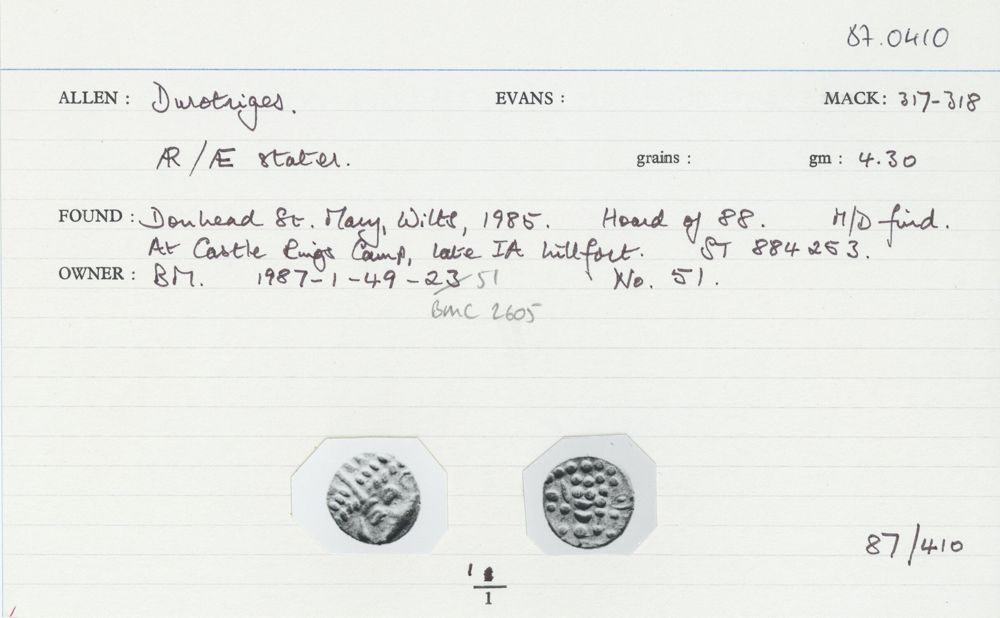 87.0410
ALLEN : Durotriges. EVANS : MACK: 317-318
Æ/Æ stater. grains : gm : 4.30
FOUND : Donhead St. Mary, Wilts, 1985. Hoard of 88. M/D find.
At Castle Rings Camp, late IA hillfort. ST 884253.
OWNER : BM. 1987-1-49-23 51 No. 51.
BMC 2605
87/410
1
1